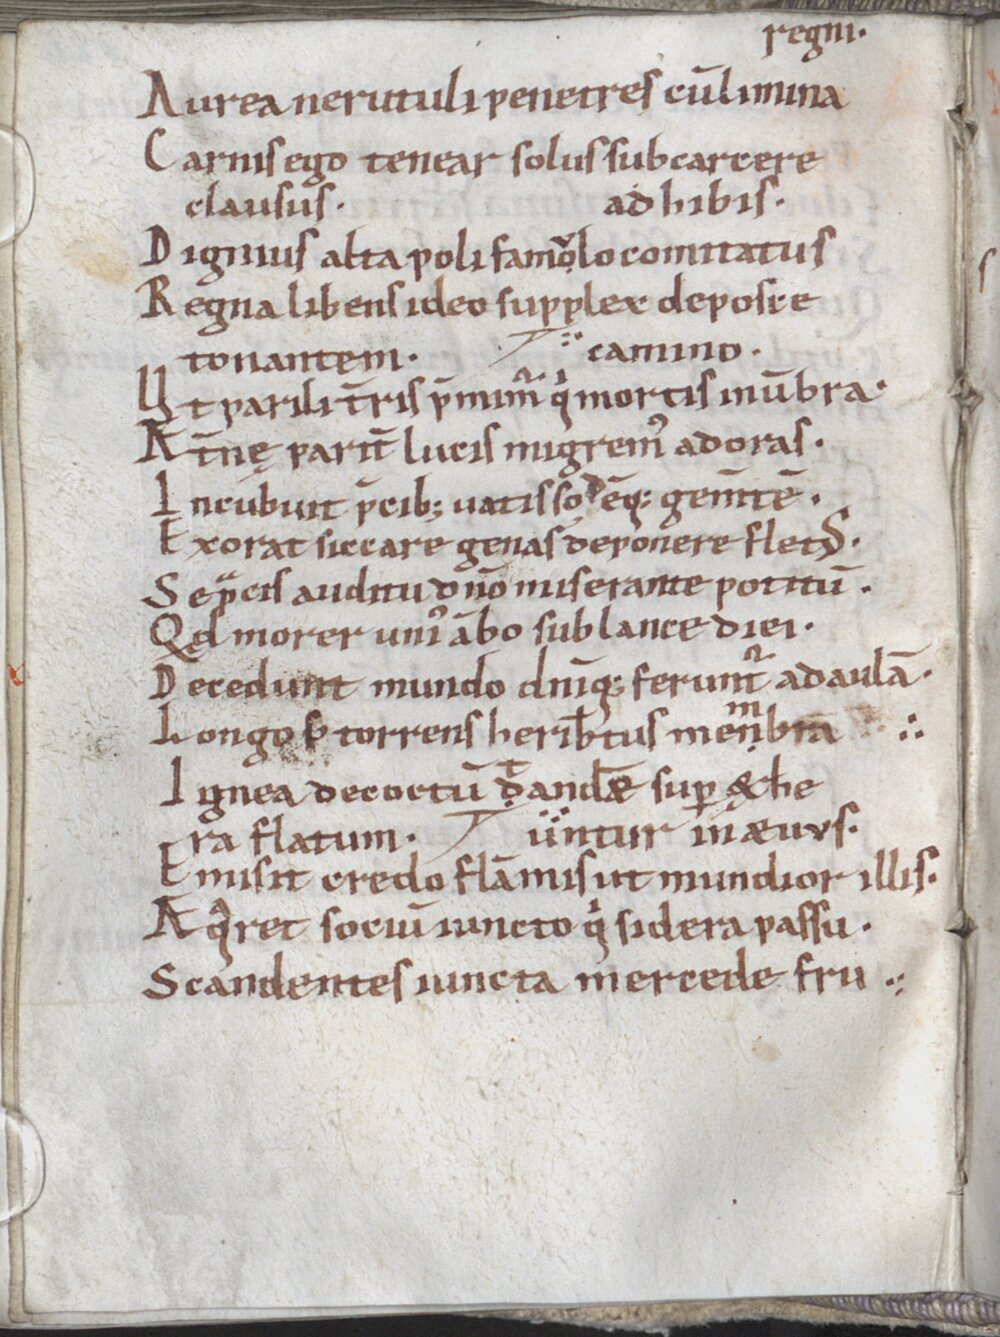 regni.
Aurea ne rutuli penetres cūlimina
Carnis ego tenear solus sub carcere
clausus. adhibis.
Dignius alta poli famolo comitatus
Regna libens ideo supplex deposce
tonantem. camino.
Ut parili tr̄is p̄mim̄ q mortis inūbra.
At̄nę parit̄ lucis migrem᾽ ad oras.
Incubuit p̄cib; uatis so ēq; gemitē.
Exorat siccare genas deponere flet᷒.
Se p̄cis auditu dn̄o miserante potitū.
Qd morer uni᾽ ābo sub lance diei.
Decedunt mundo dn̄iq; ferunt᷑ ad aulā.
Longo torrens herib̄tus menbra
m
Ignea decoctū d̄andæ sup̱ æthe
ra flatum. untur in æuvs.
Emisit credo flāmis ut mundior illis.
Aq̄ret sociū iuncto q sidera passu.
Scandentes iuncta mercede fru